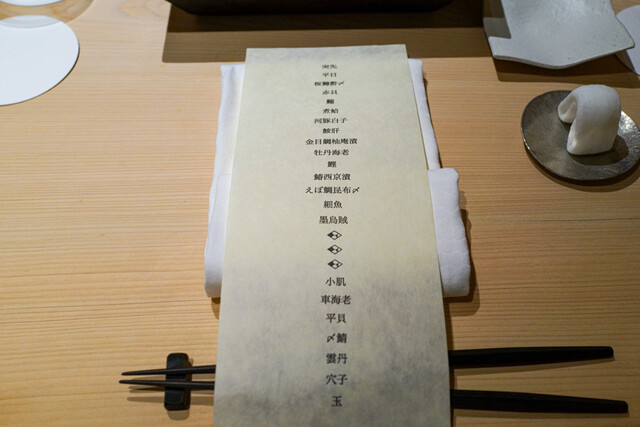 突先
平目
桜鱒酢〆
赤貝
鯛
煮蛤
河豚白子
鮟肝
金目鯛柚庵漬
牡丹海老
鰹
鰆西京漬
えぼ鯛昆布〆
細魚
墨烏賊
小肌
車海老
平貝
〆鯖
雲丹
穴子
玉